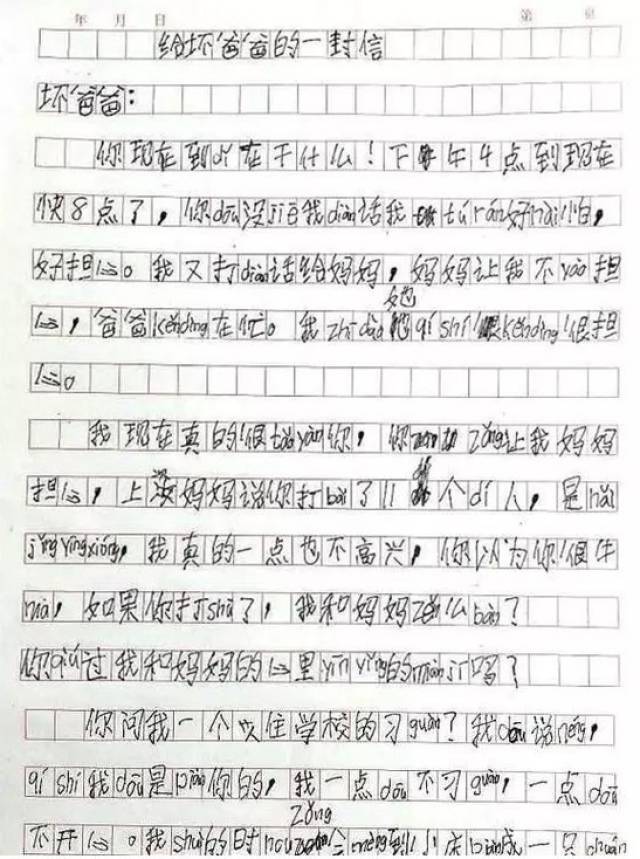 年 月 日 第 页
给坏爸爸的一封信
坏爸爸:
你现在到dǐ在干什么!下午4点到现在
快8点了,你dōu没jiē我diàn话我tú rán好hài怕,
好担心。我又打diàn话给妈妈,妈妈让我不yào担
心,爸爸kěndìng在忙。我zhī dào她qí shí kěndìng很担
心。
我现在真的很tǎo yàn你,你zǒng让我妈妈
担心,上次妈妈说你打bài了11个dí人,是hǎi
jūn yīngxióng,我真的一点也不高兴,你以为你很牛
ma,如果你打shū了,我和妈妈zěn么bàn?
你qiú过我和妈妈的心里yīn yǐng的miàn jī吗?
你问我一个人住学校的习guàn?我dōu说néng,
qí shí我dōu是piàn你的,我一点dōu不习guàn,一点dōu
不开心。我shuì的时hou zǒng会mèng到小床biàn成一只chuán